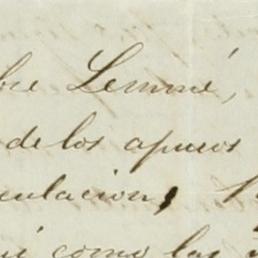 bre Lemmé,
de los apuros
culacion,
como las